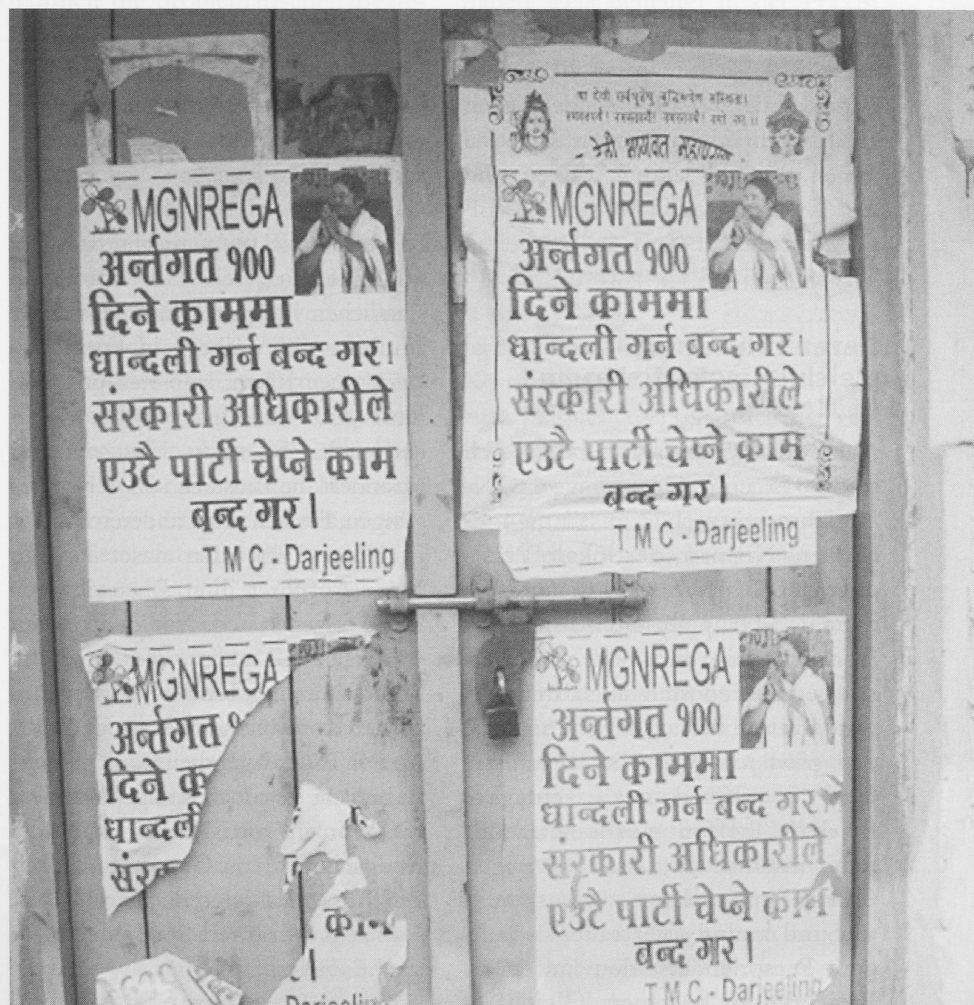 MGNREGA
अर्न्तगत १००
दिने काममा
धान्दली गर्न बन्द गर।
संरकारी अधिकारीले
एउटै पार्टी चेप्ने काम
बन्द गर।
T M C - Darjeeling
या देवी
देवी भागवत महापुराण
MGNREGA
अर्न्तगत १००
दिने काममा
धान्दली गर्न बन्द गर
संरकारी अधिकारीले
एउटै पार्टी चेप्ने काम
बन्द गर।
T M C - Darjeeling
MGNREGA
अर्न्तगत
दिने
धान्दली
काम
Darjeeling
MGNREGA
अर्न्तगत १००
दिने काममा
धान्दली गर्न बन्द गर
संरकारी अधिकारीले
एउटै पार्टी चेप्ने काम
बन्द गर।
T M C - Darjeeling